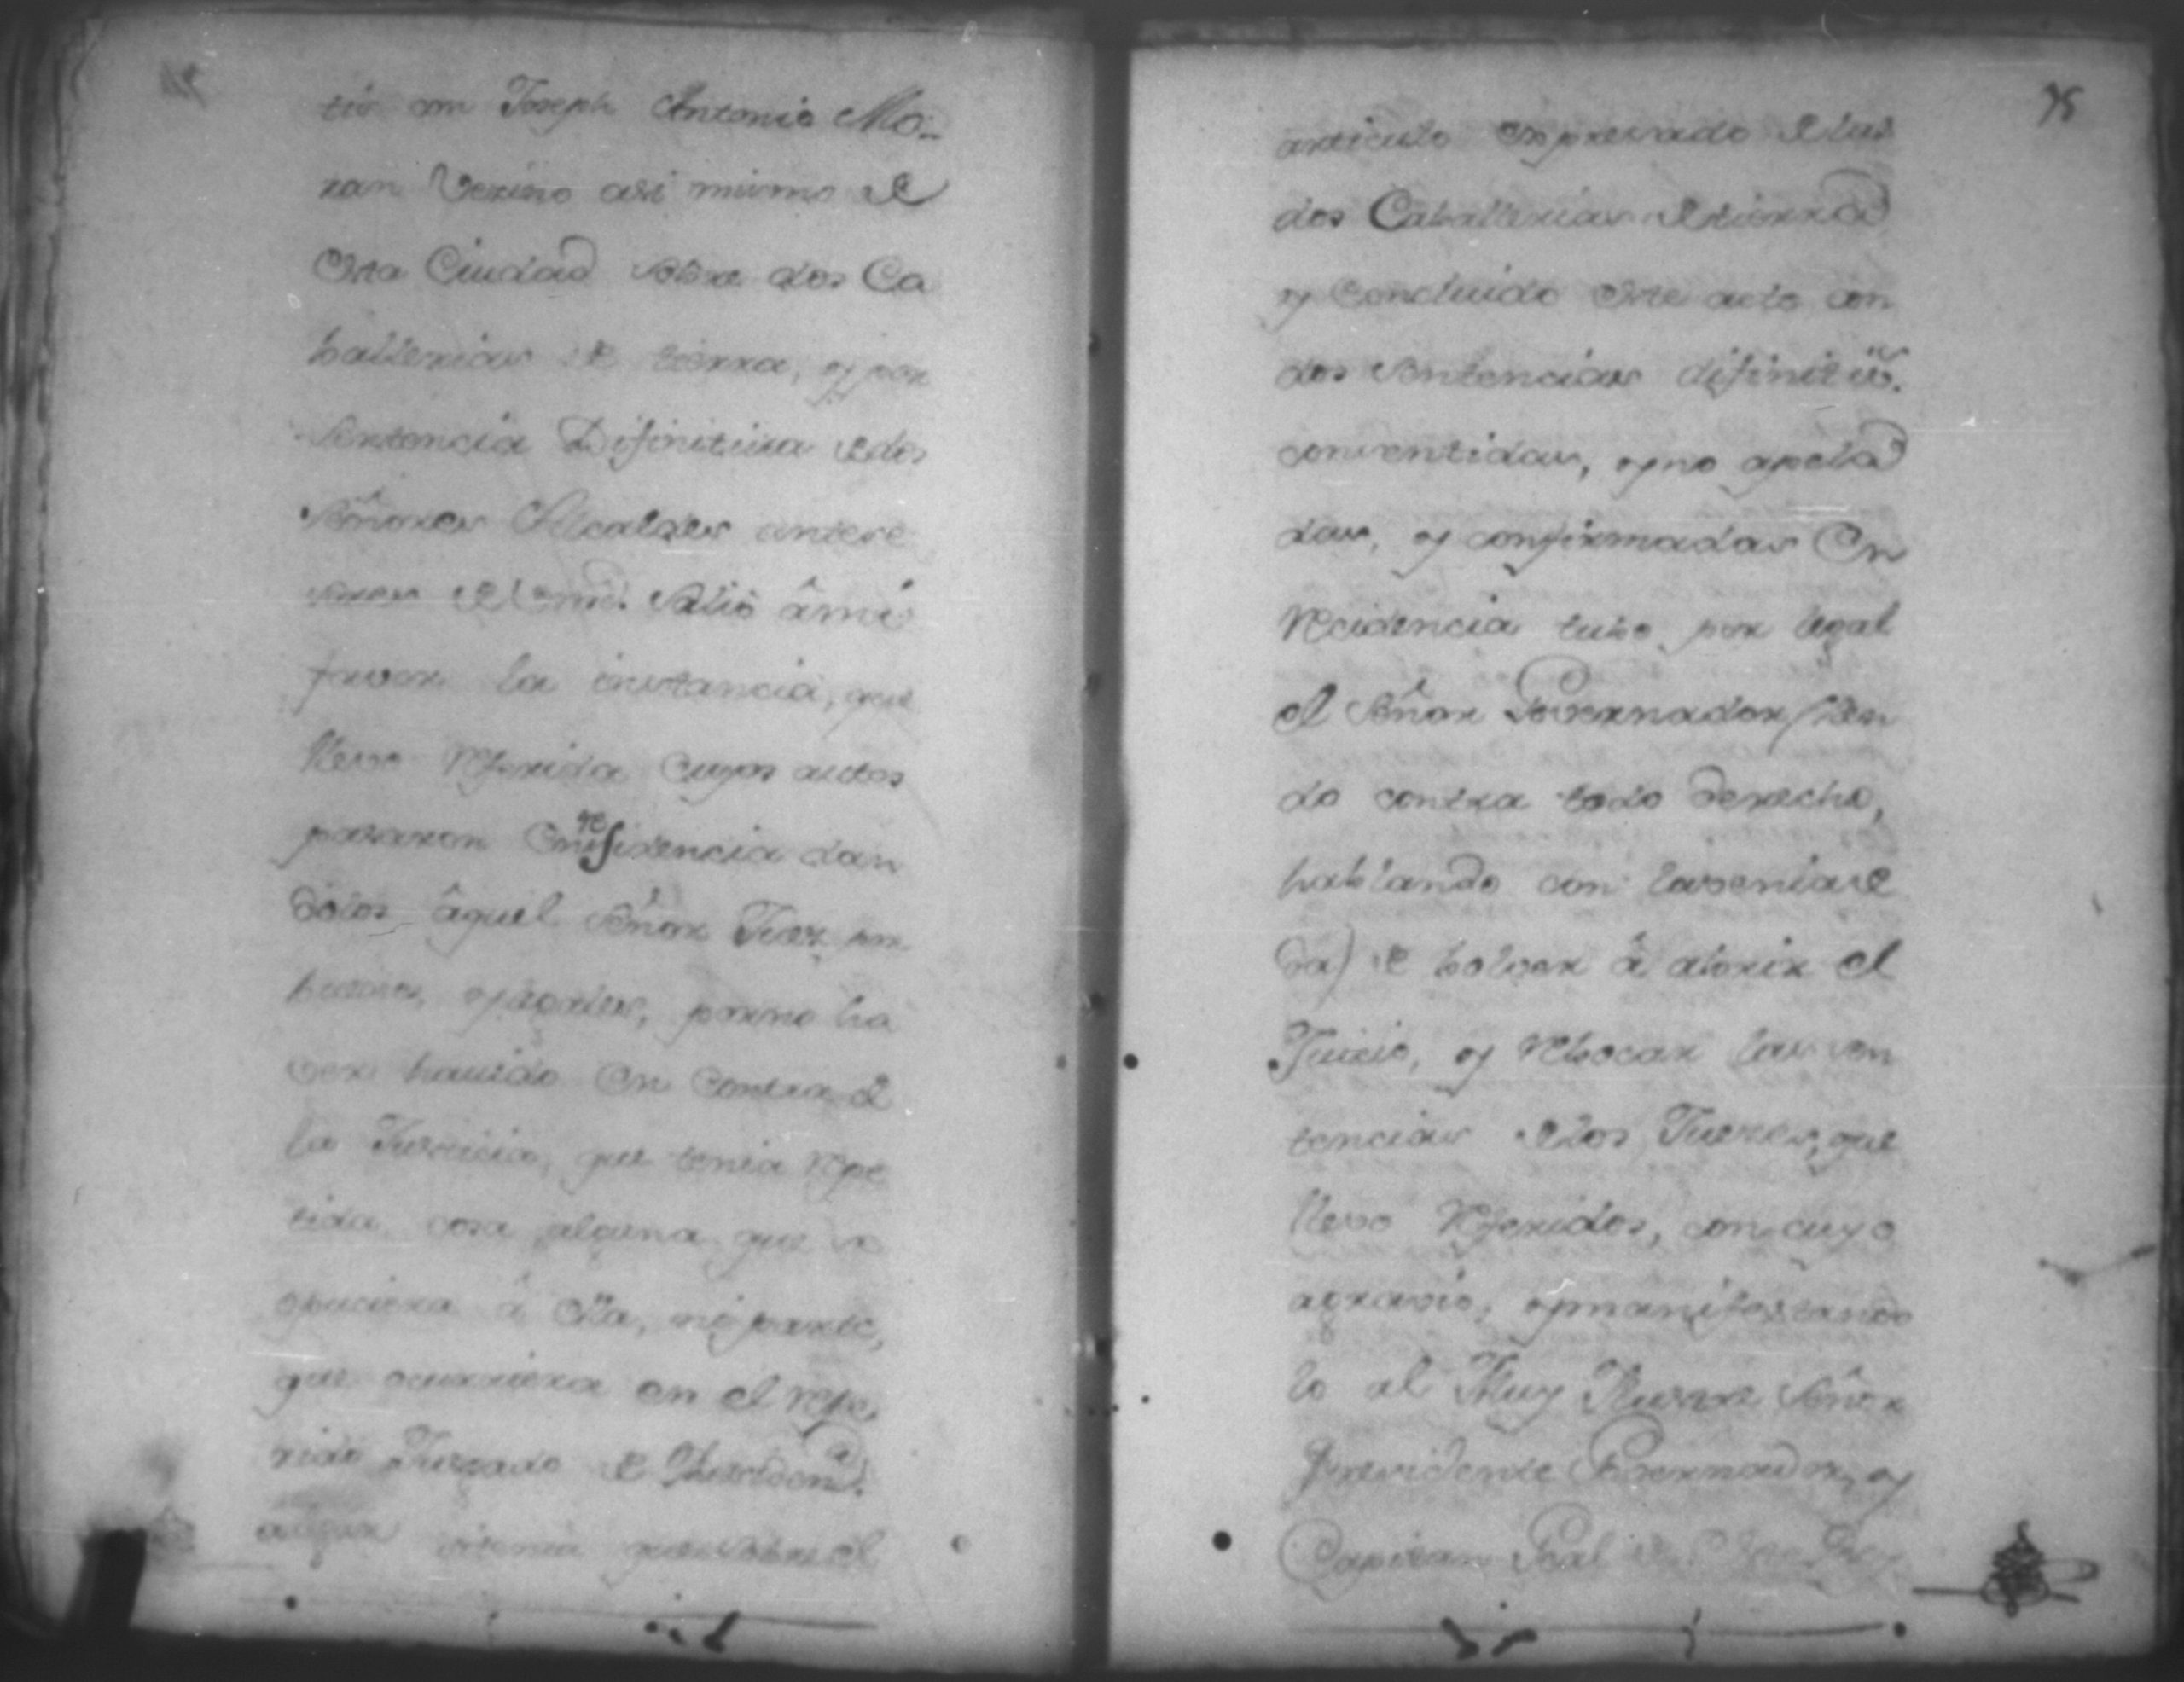 tir con Joseph Antonio Mo-
ran Vezino asi mismo de
Esta Ciudad sobre dos Ca
ballerias de tierra, y por
Sentencia Difinitiva de dos
Señores Alcaldes antese
sores salió â mi
favor la instancia, que
llevo referida cuyos autos
pasaron en residencia dan
dolos âquel Señor Juez por
buenos, y por no ha
ver havido en contra de
la Justicia, que tenia repe
tida cosa alguna que se
opuciera â ella, ni parte,
que ocurriera en el refe
rido Juzgado de
que sobre el
75
articulo expresado de las
dos Caballerias de tierra
y concluido este acto con
dos sentencias difinitivs.
consentidas, y no apela
das, y confirmadas en
recidencia tubo por legal
el Señor Governador (sien
do contra todo derecho,
hablando con la venia de
da) de bolver â abrir el
Juicio, y rebocar las sen
tencias de los Jueces, que
llevo referidos, con cuyo
agravio, y manifestando
lo al Muy Ilustre Señor
Precidente Governador, y
Capitan Gral de